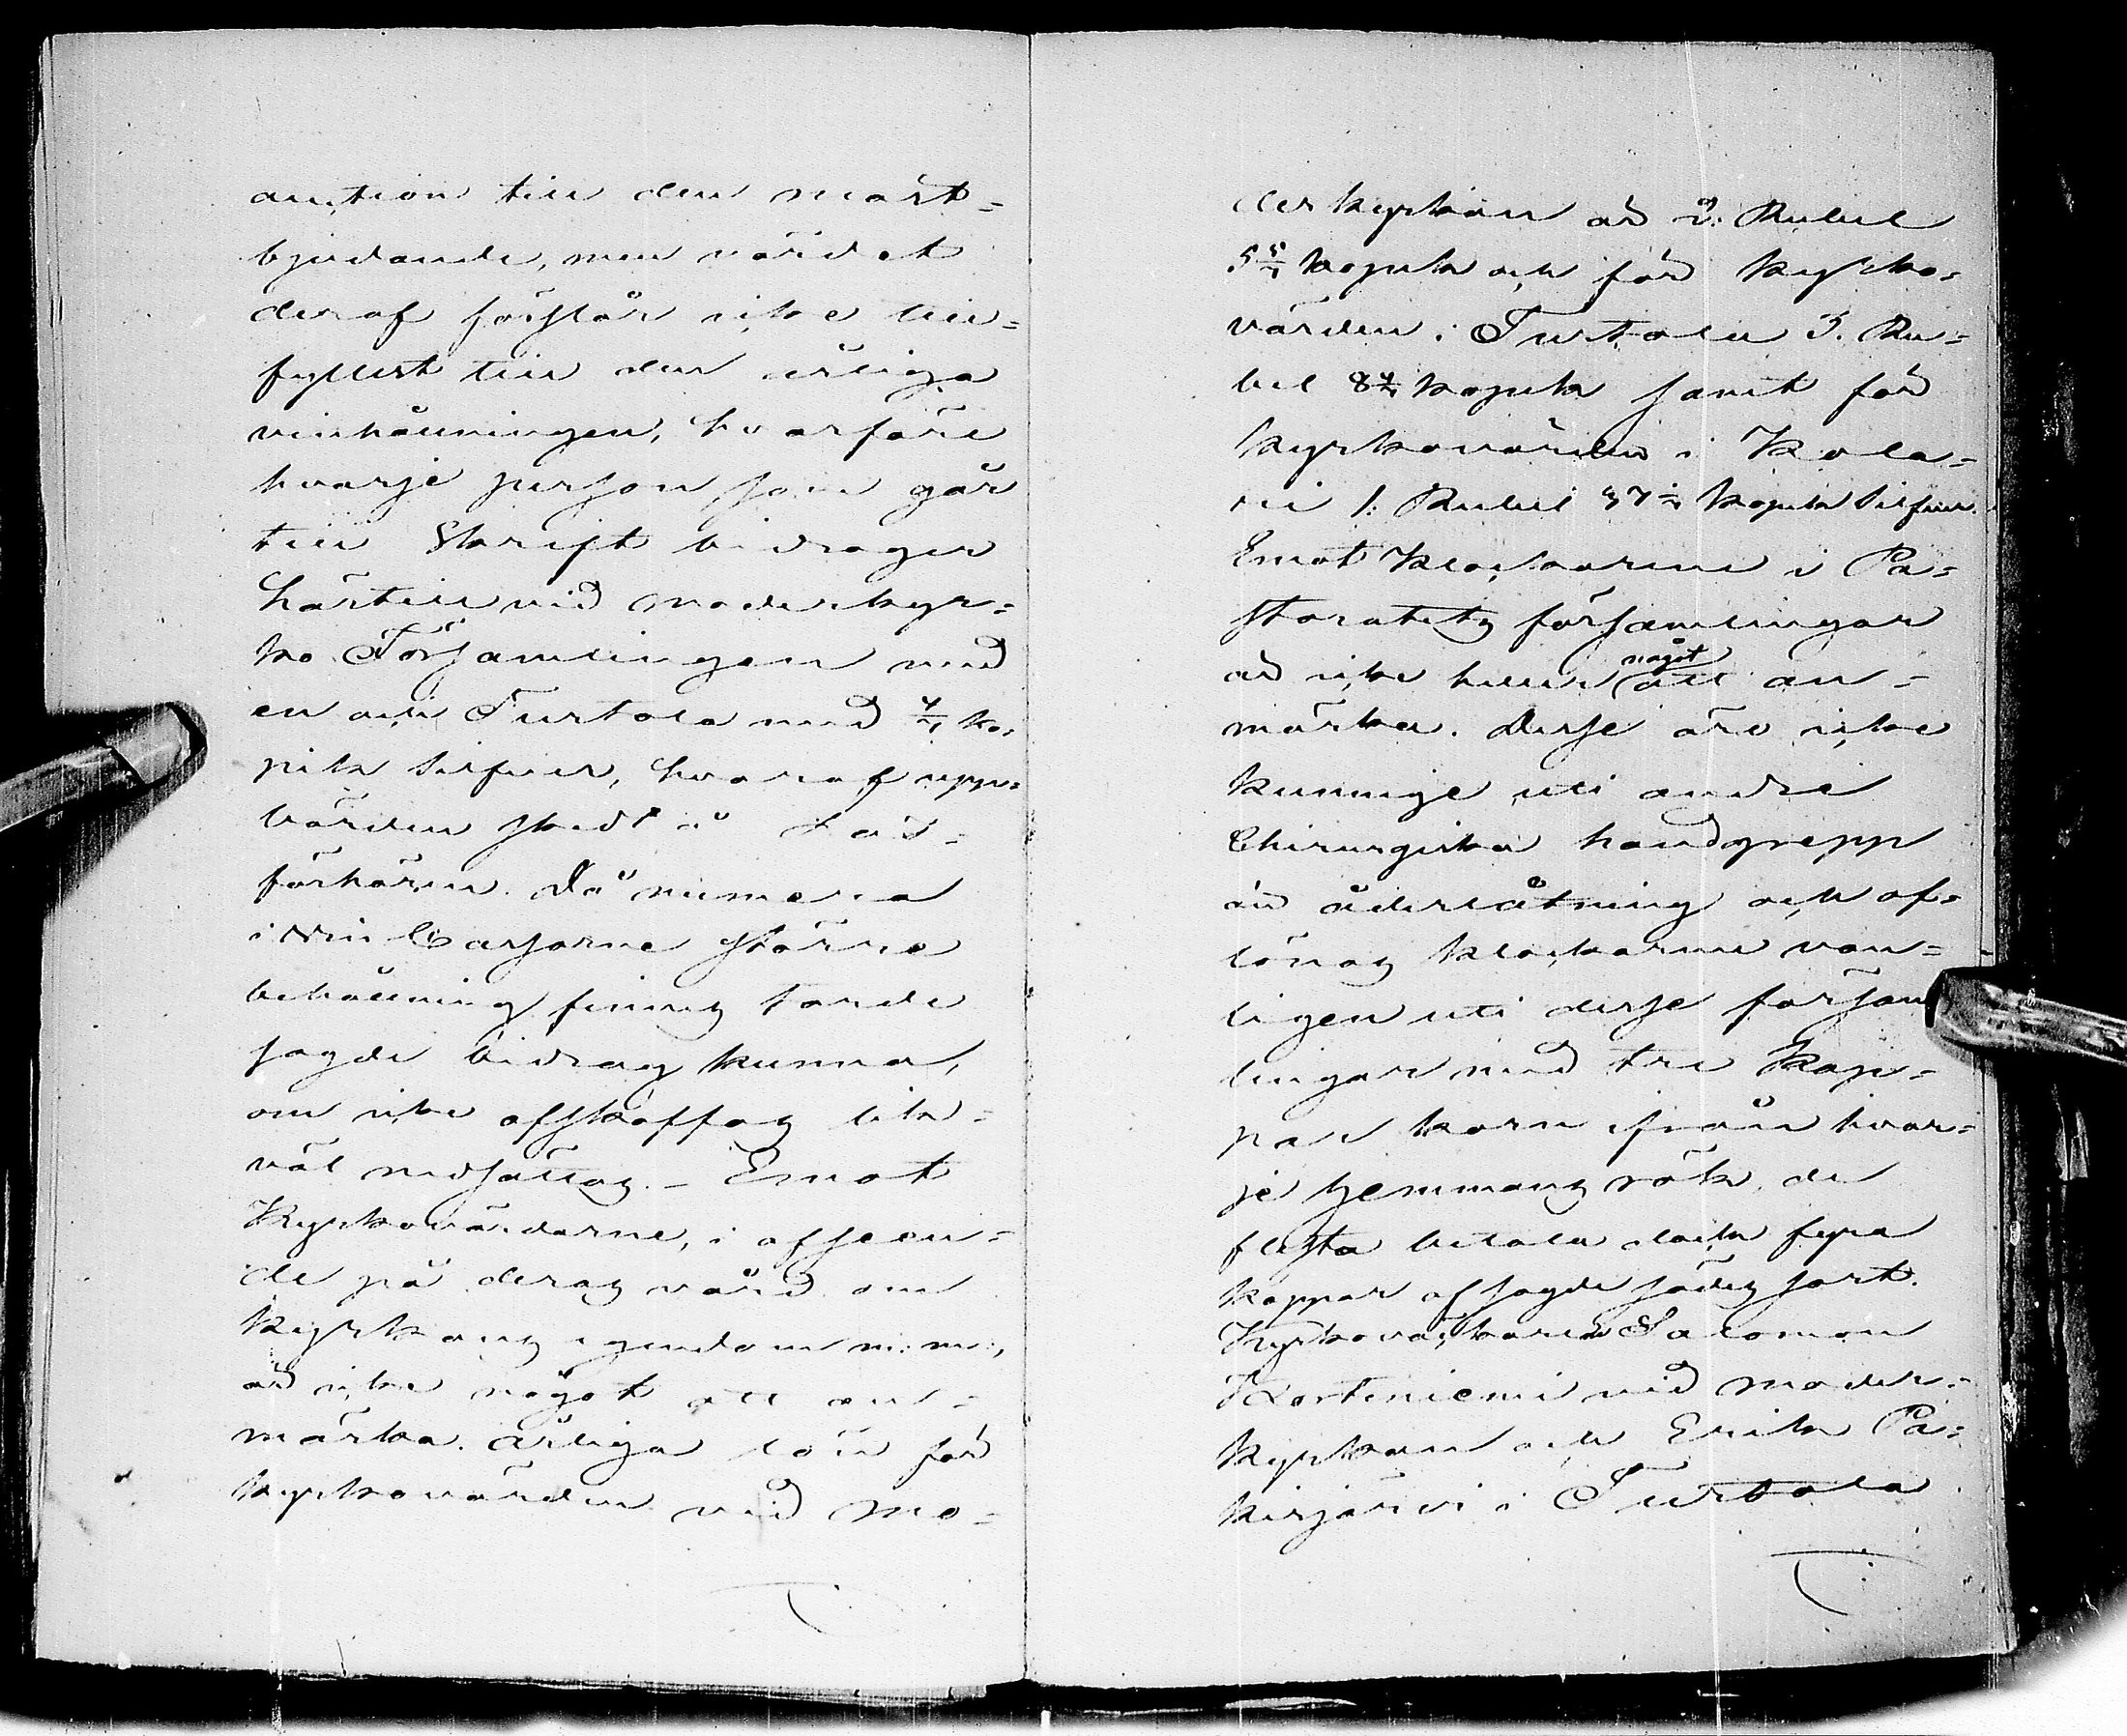 auction till den mäst=
bjudande, men värdet
deraf förslår icke till=
fyllest till den årliga
vinhållningen, hvarföre
hvarje person som går
till Skrift bidrager
härtill vid moderkyr=
ko Församlingen med
en och Turtola med 4/7 ko=
pek Silfver, hvaraf upp=
börden skedt å Läs=
förhören. Då numera
i Vin Cassorne större
behållning finnes torde
sagde bidrag kunna,
om icke afskaffas lik=
väl nedsättas. – Emot
Kyrkovärdarne, i afseen=
de på deras vård om
kyrkans egendom m: m:,
är icke något att an=
märka. Årliga lön för
kyrkovärden vid mo=
derkyrkan är 2. Rubel
kopek och för kyrko=
värden i Turtola 3. Ru=
bel 8 4/7 kopek samt för
kyrkovärden i Kola=
ri 1: Rubel kopek Silfver.
Emot Klockarne i Pa=
storatets församlingar
är icke heller något att an=
märka. Desse äro icke
kunnige uti andre
Chirurgiska handgrepp
än åderlåtning och af=
lönas klockarne van=
ligen uti desse försam
lingar med tre Kap=
par korn ifrån hvar=
je hemmans rök, de
flesta betala dock fyra
kappar af sagde sädes sort.
Kyrkoväktaren Salomon
Korteniemi vid moder=
kyrkan och Erik Pa=
kisjärvi i Turtola